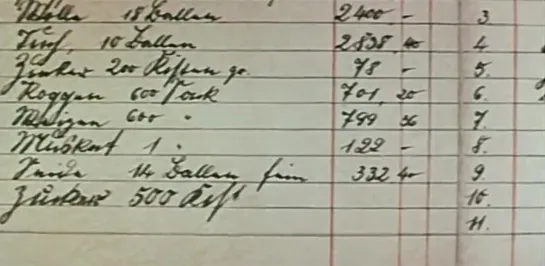 Wolle 18 Ballen 2400 - 3
Tuch, 10 Ballen 2838 40 4.
Zucker 200 Kisten gr. 78 - 5.
Roggen 600 Sack 701, 20 6.
Weizen 600 " 799 56 7.
Muskat 1 " 122 - 8.
Seide 14 Ballen fein 332 40 9.
Zucker 500 Kist 10.
11.